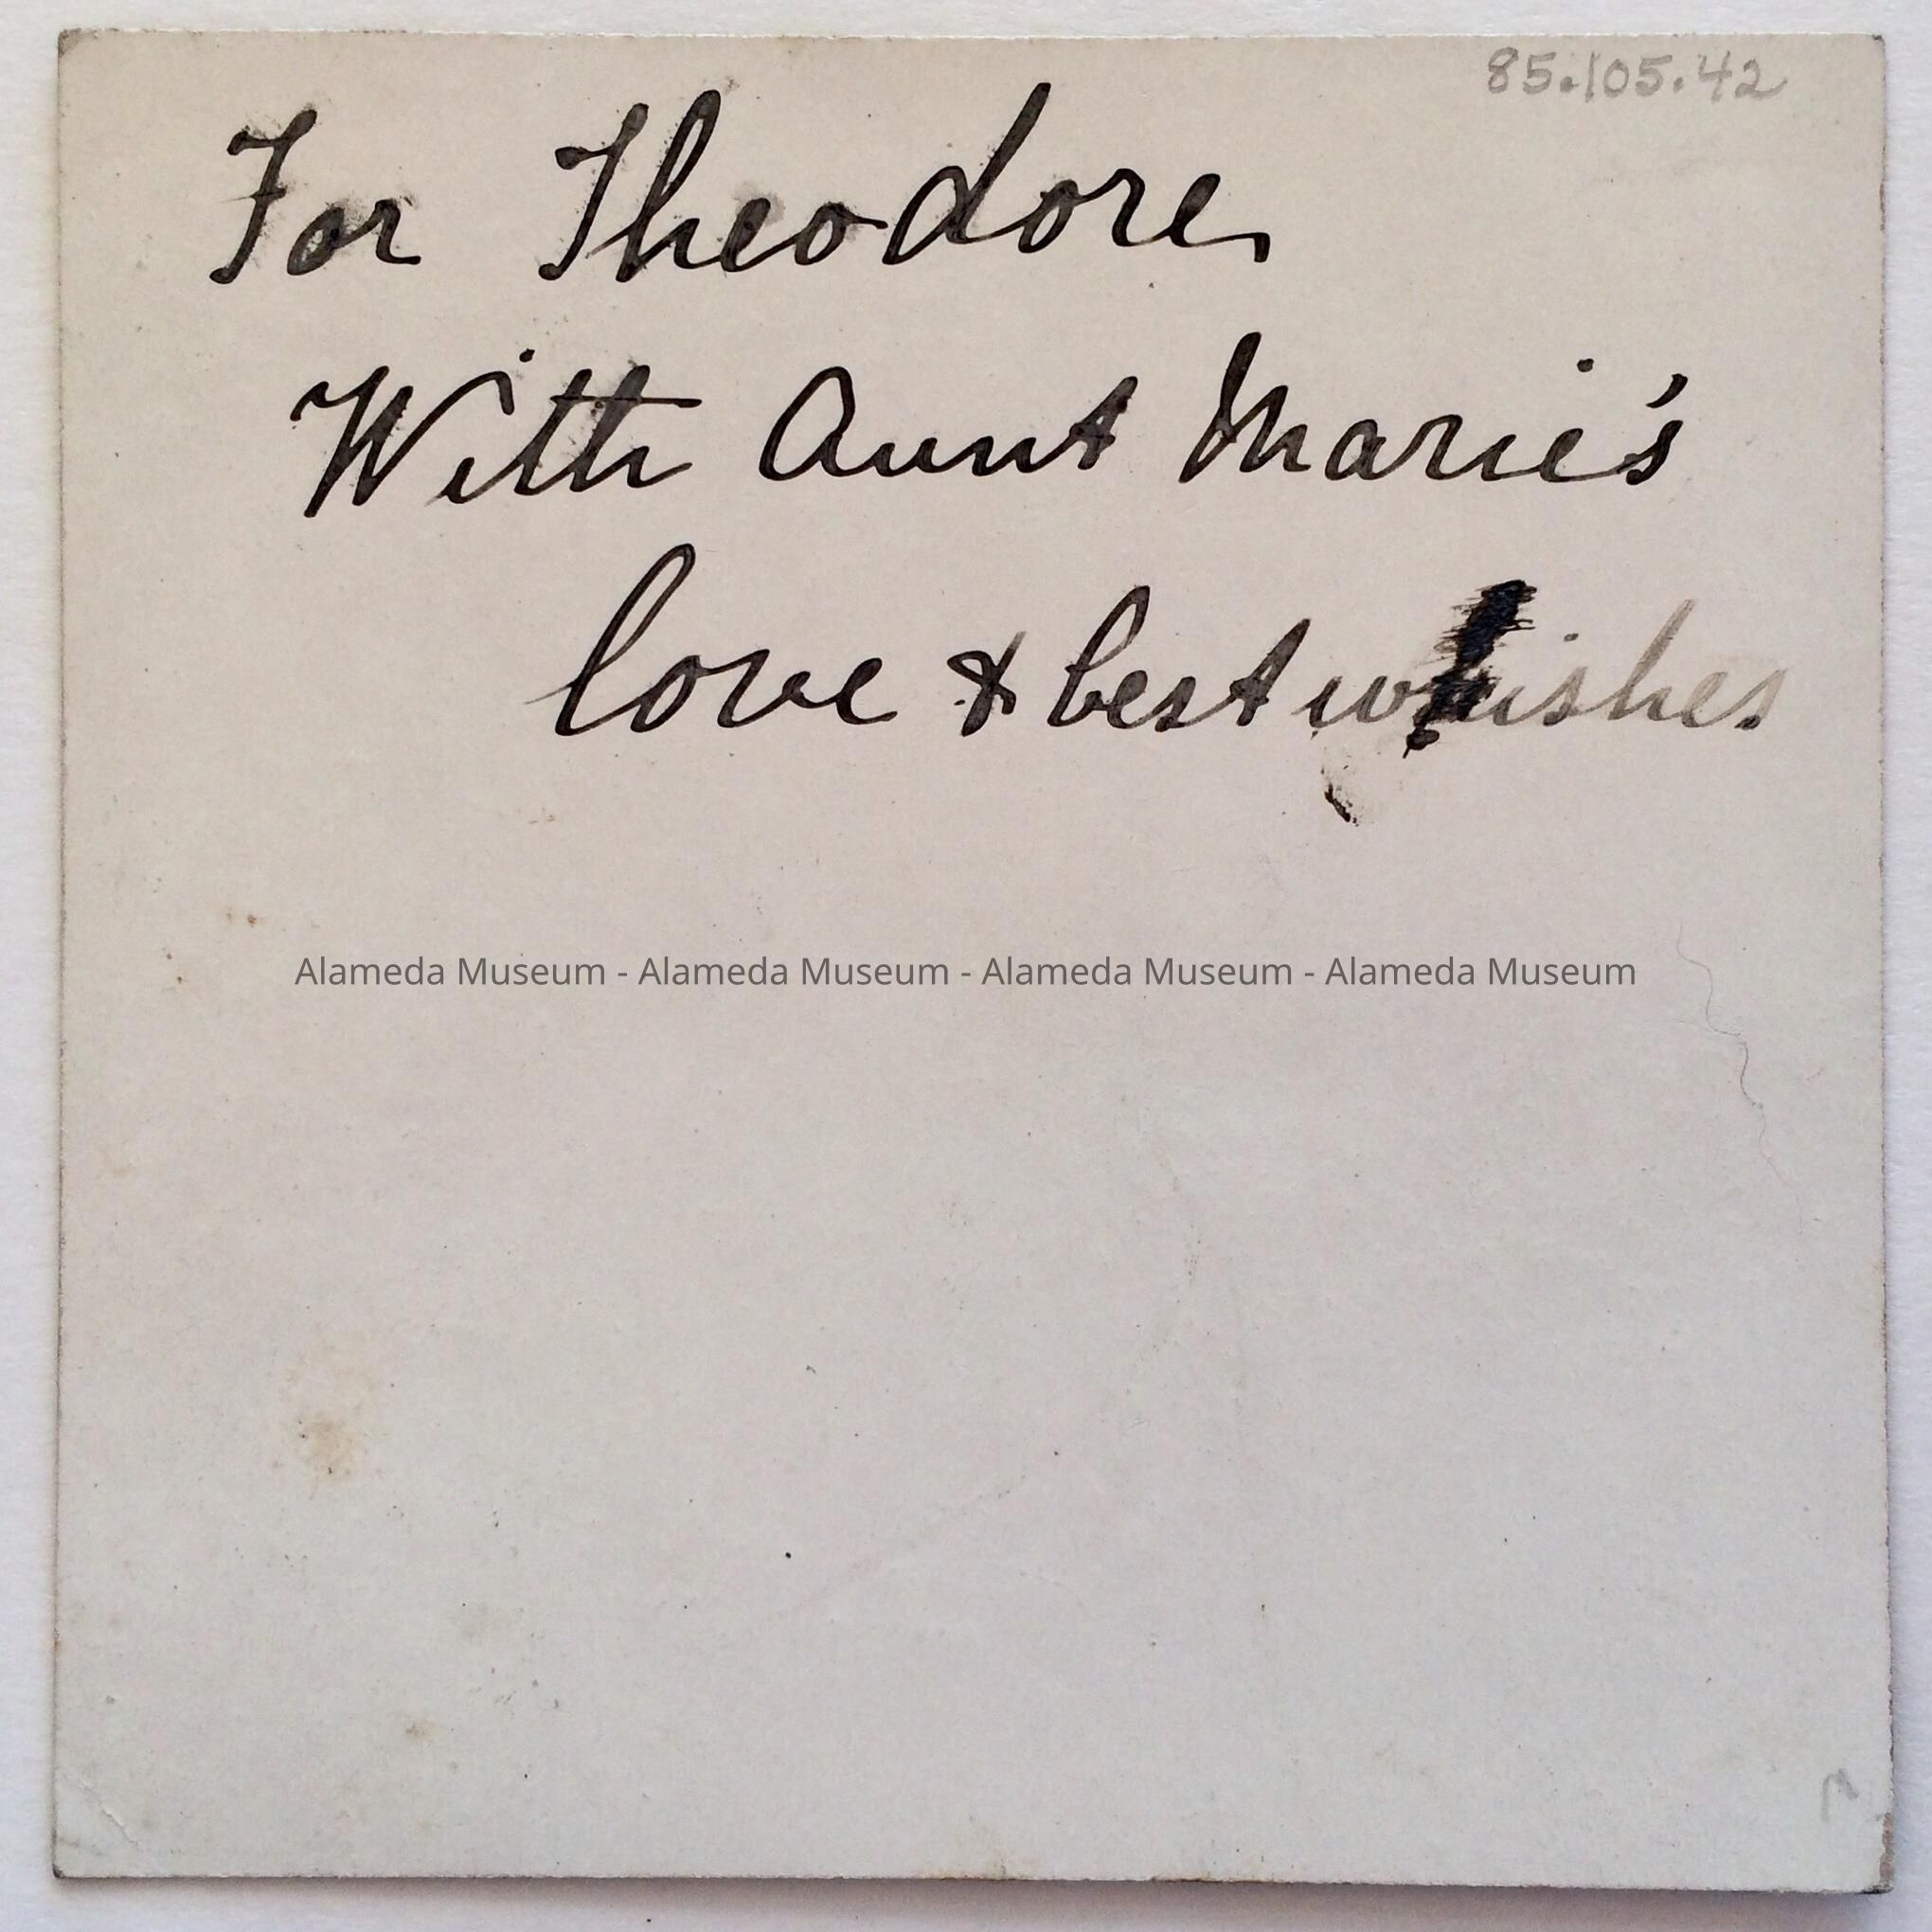 85.105.42
For Theodore
With Aunt Marie's
love & best wishes
Alameda Museum - Alameda Museum - Alameda Museum - Alameda Museum